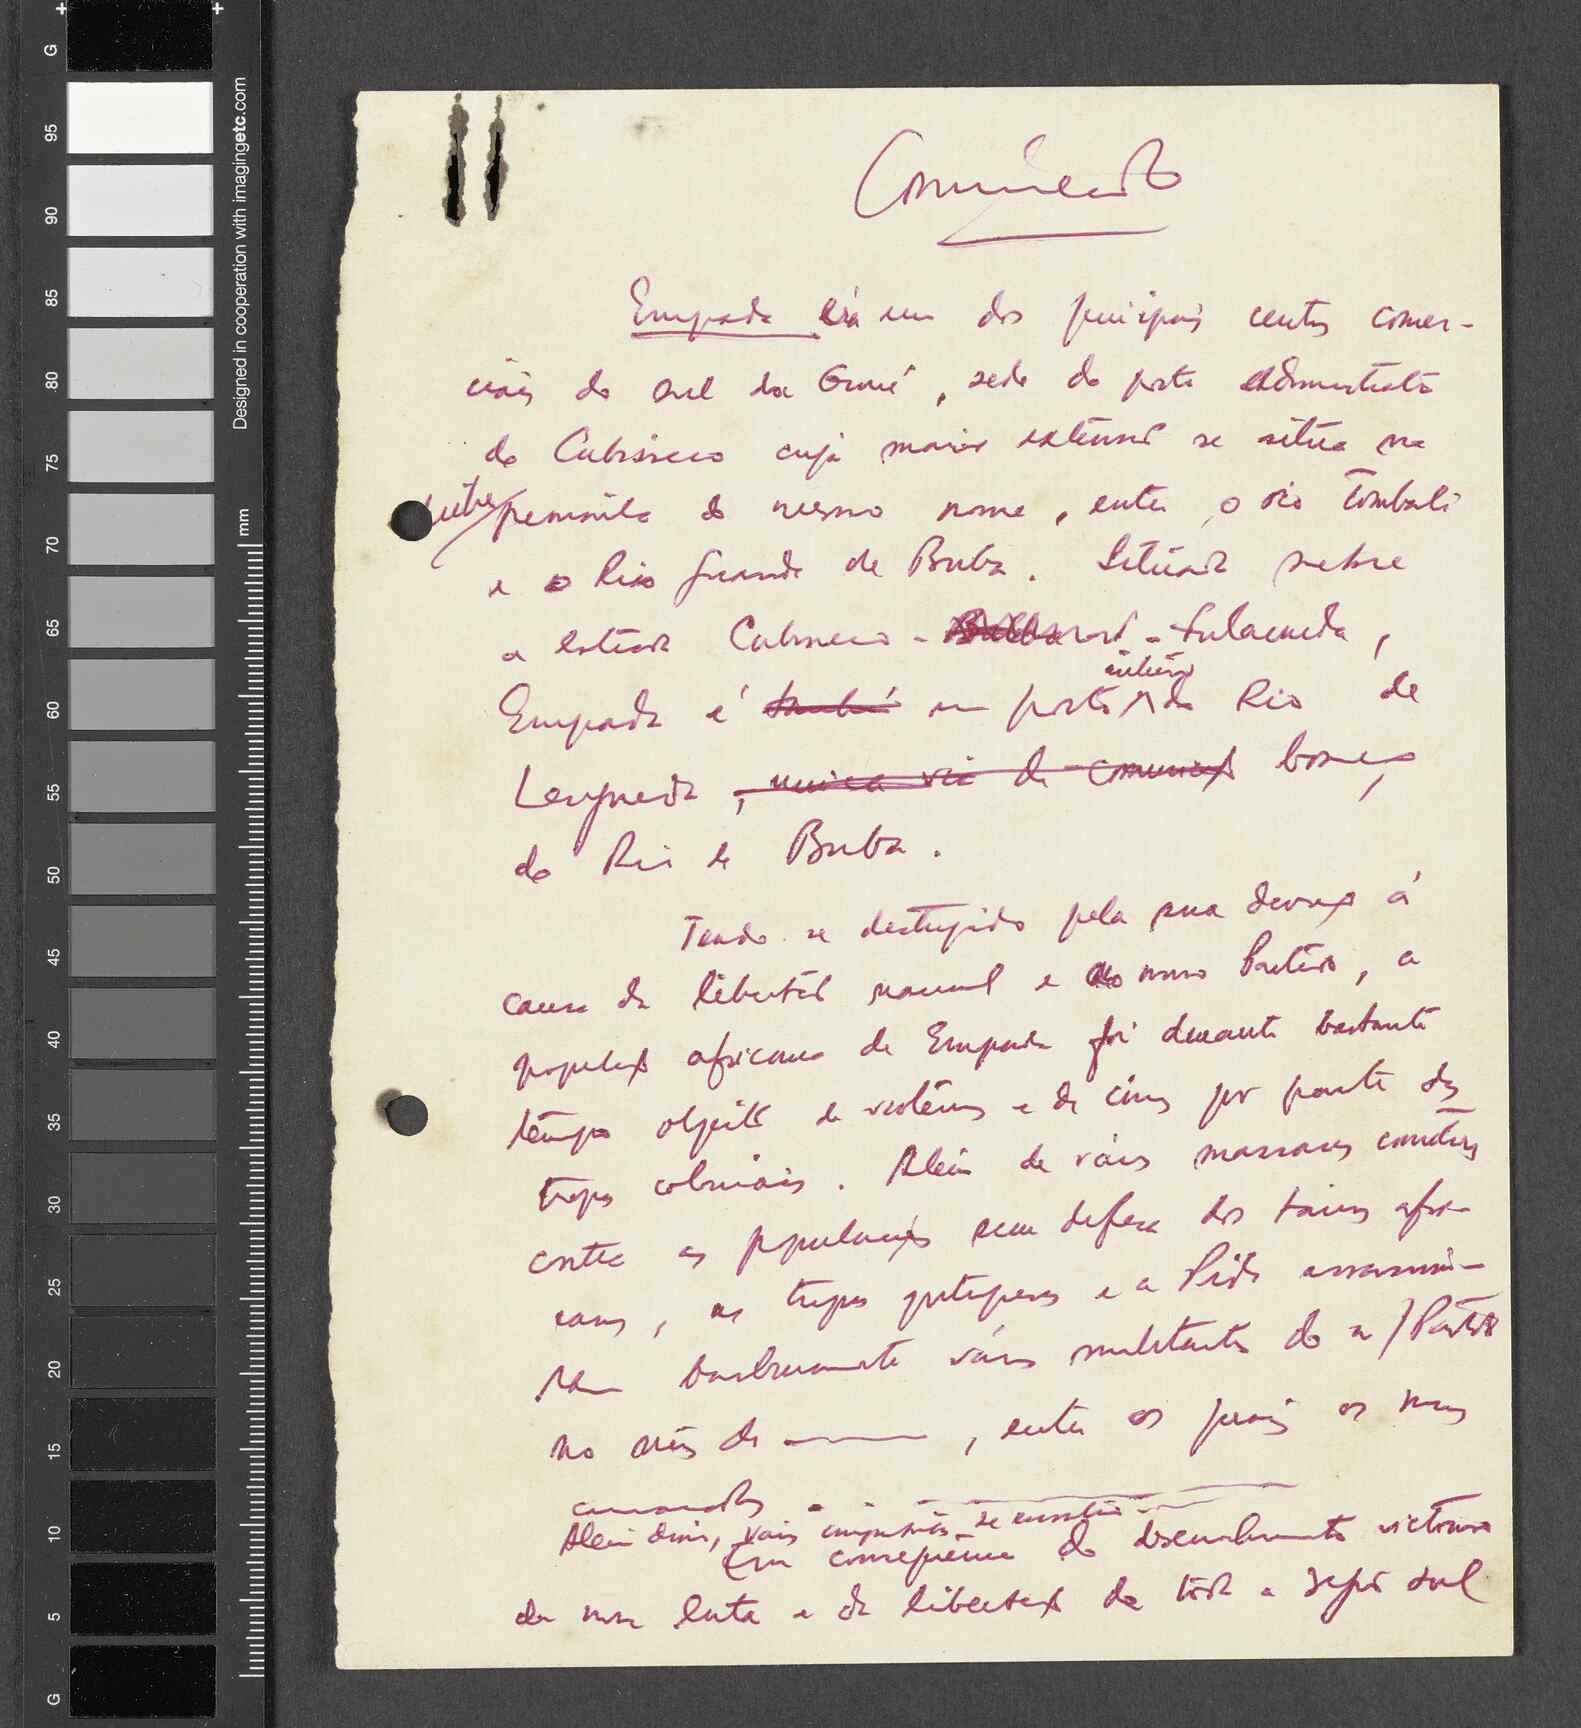 Comunicado
Empada era um dos principais centros comer-
ciais do sul da Guiné, sede do posto administrativo
de Cubisseco cuja maior extensão se situa na
península do mesmo nome, entre o rio Tombali
e o Rio Grande de Buba. Situada sobre
a estrada Cubisseco - - Fulacunda,
Empada é também um porto do Rio de
, única via de comunicação braço
do Rio de Buba.
Tendo-se distinguido pela sua devoção à
causa da libertação nacional e ao nosso Partido, a
população africana de Empada foi durante bastante
tempo objecto de e de por parte das
tropas coloniais. Além de vários massacres cometidos
contra as populações sem defesa dos bairros afri-
canos, as tropas portuguesas e a Pide assassina-
ram barbaramente vários militantes do n/Partido
no mês de , entre os quais os nossos
camaradas
Além disso, vários
Em consequência do desenvolvimento vitorioso
da nossa luta e da libertação de toda a região sul
Designed in cooperation with imagingetc.com
mm
G
95
90
85
80
75
70
65
60
55
50
45
40
35
30
25
20
15
10
5
G